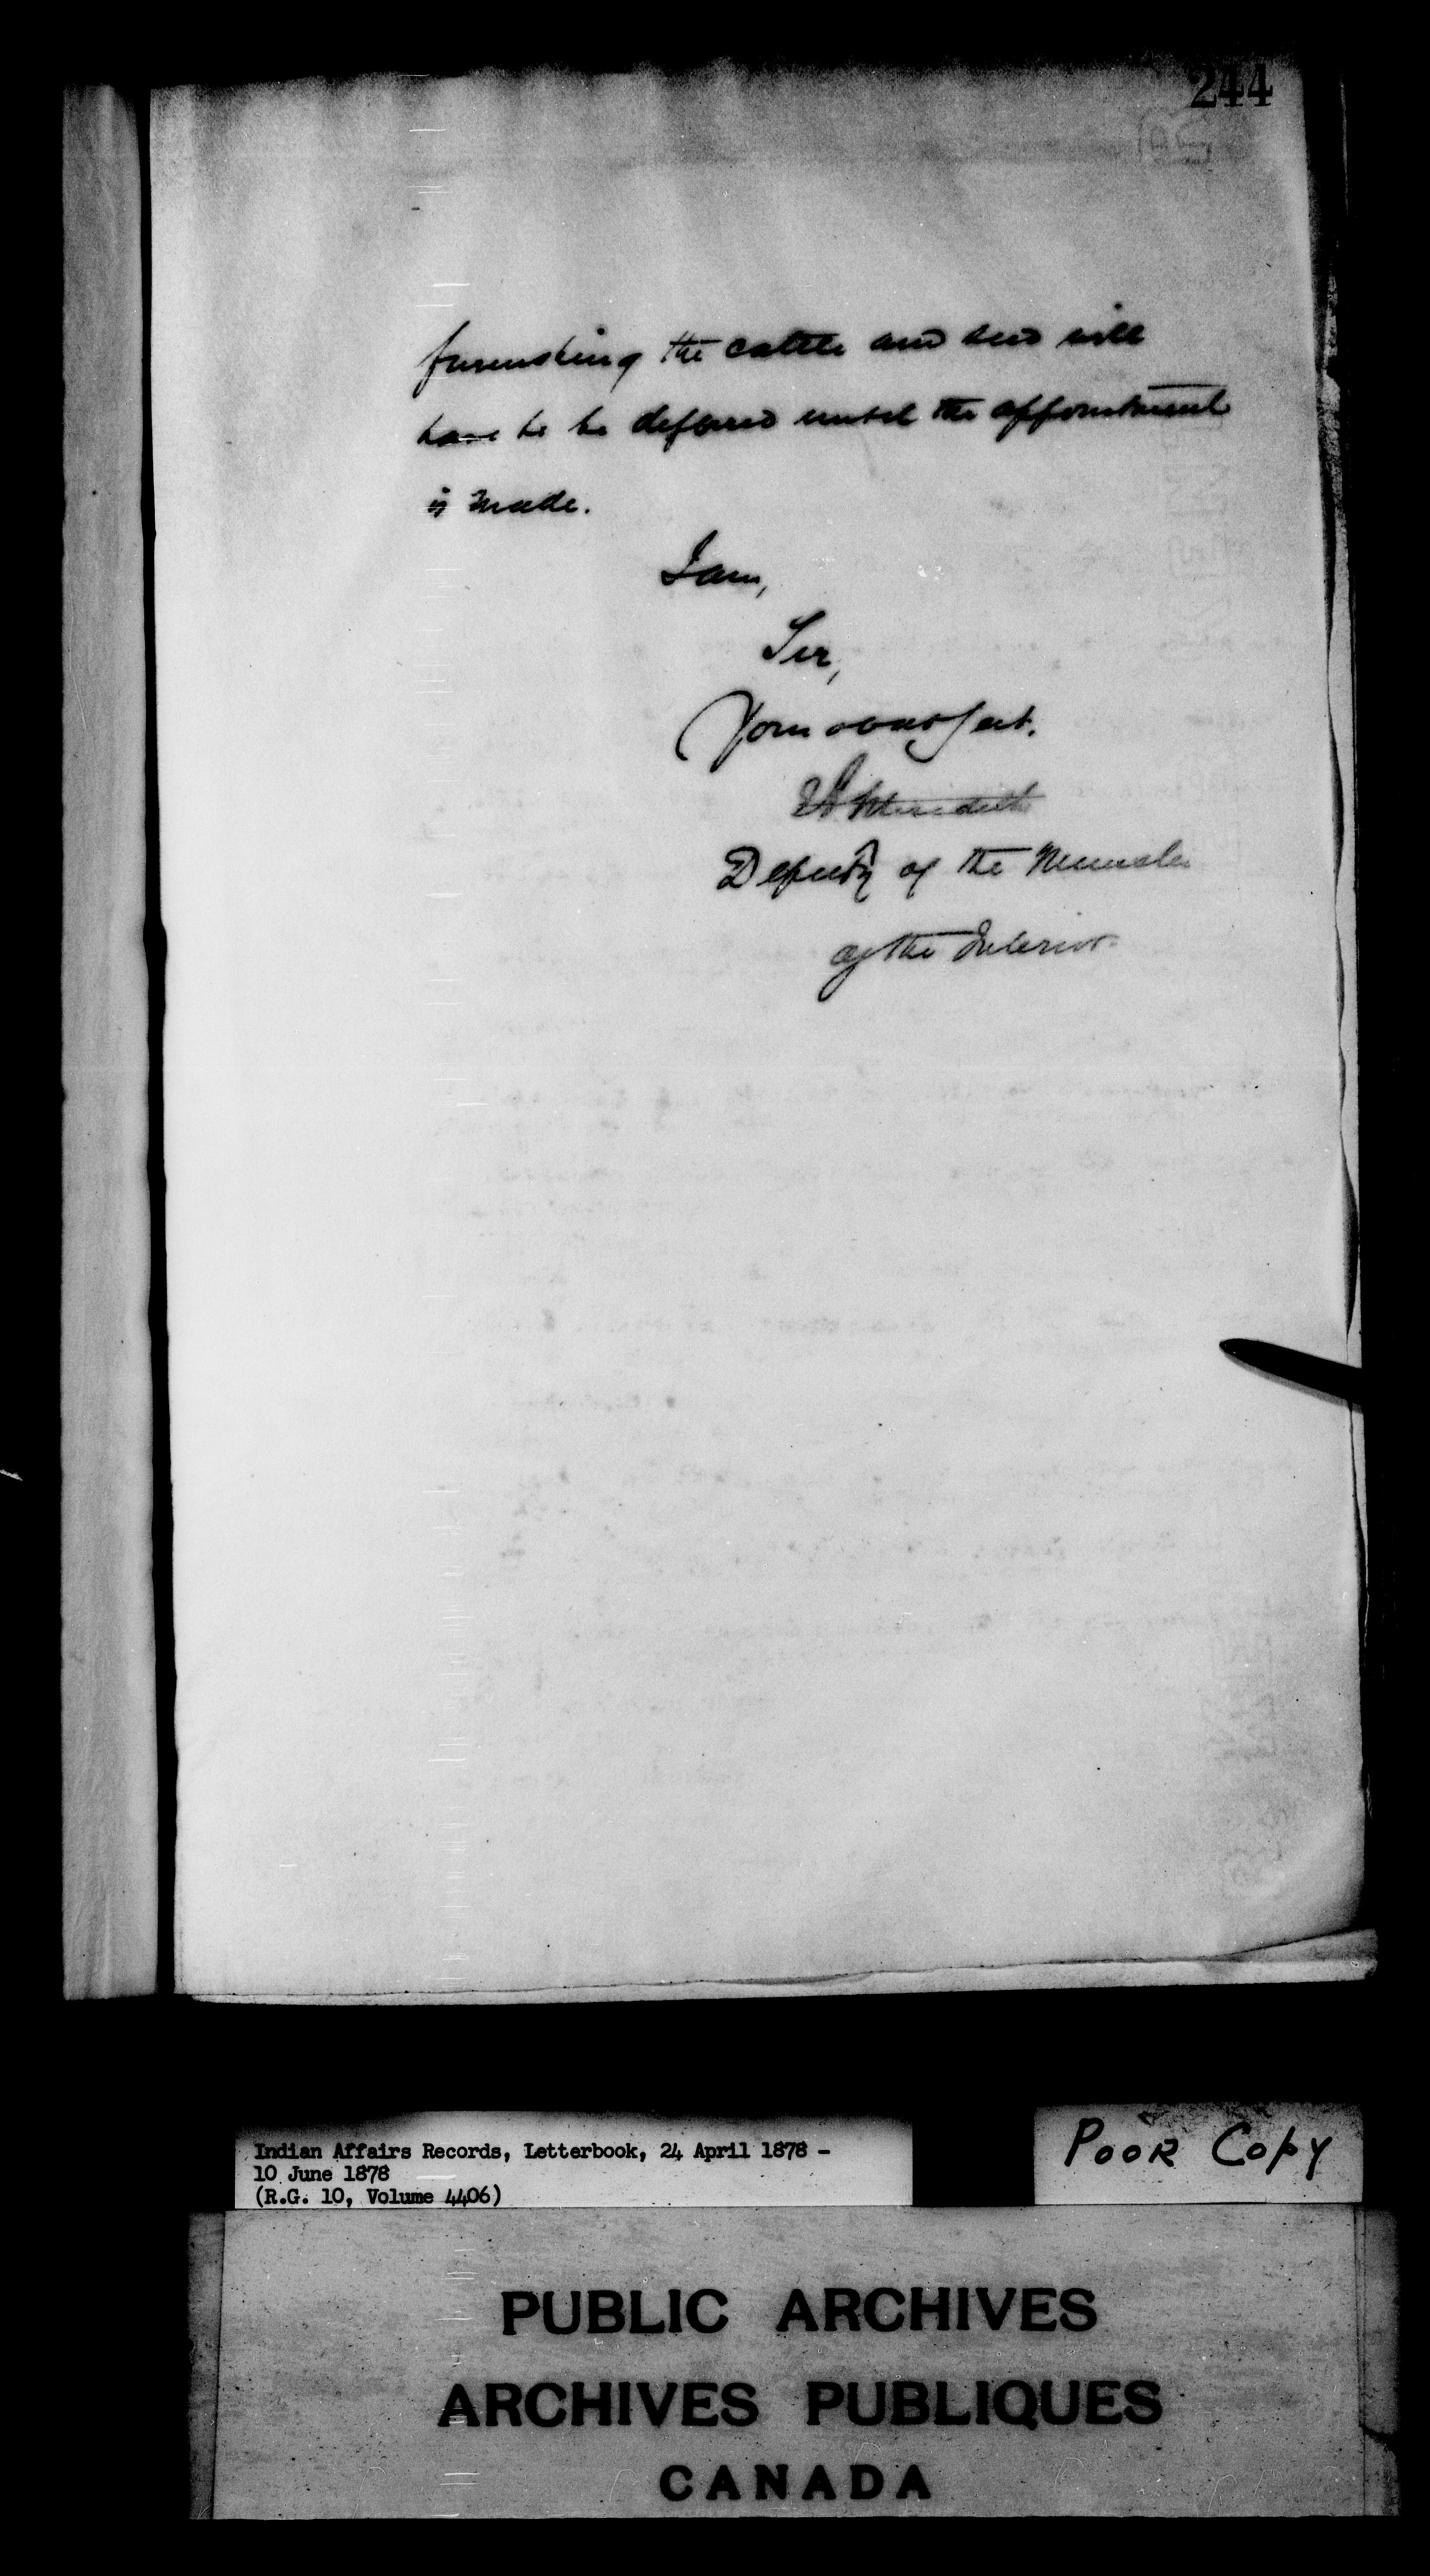 244
furnishing the cattle and seed will
have to be deferred until the appointment
is made.
I am,
Sir,
Your obedt Sert.
E A Meredith
Deputy of the Minister
of the Interior
Indian Affairs Records, Letterbook, 24 April 1878 -
10 June 1878
(R.G. 10, Volume 4406)
POOR COPY
PUBLIC ARCHIVES
ARCHIVES PUBLIQUES
CANADA